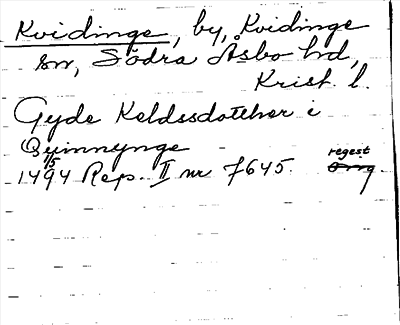 Kvidinge, by, Kvidinge
sn, Södra Åsbo hd,
Krist. l.
Gyde Keldssdotther i
Qvinnynge
1/5
1494 Rep. II nr 7645. regest